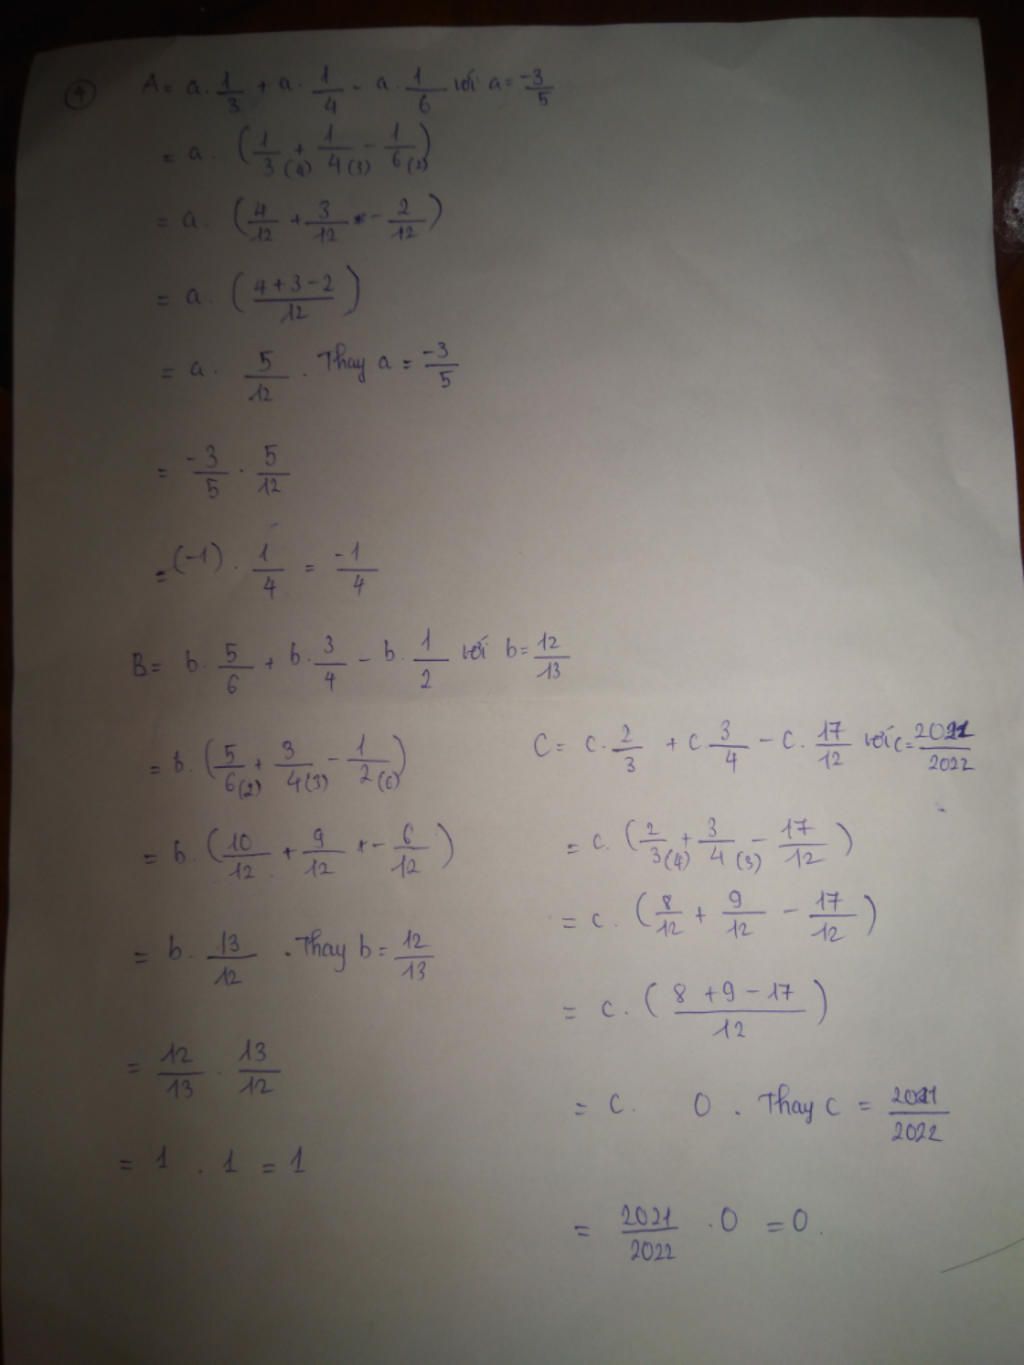 ④ A = a . 1/3 + a . 1/4 - a . 1/6 với a = -3/5
= a . (1/3(4) + 1/4(3) - 1/6(2))
= a . (4/12 + 3/12 - 2/12)
= a . ((4+3-2)/12)
= a . 5/12 . Thay a = -3/5
= -3/5 . 5/12
= (-1) . 1/4 = -1/4
B = b . 5/6 + b . 3/4 - b . 1/2 với b = 12/13
= b . (5/6(2) + 3/4(3) - 1/2(6))
= b . (10/12 + 9/12 + - 6/12)
= b . 13/12 . Thay b = 12/13
= 12/13 . 13/12
= 1 . 1 = 1
C = c . 2/3 + c 3/4 - c . 17/12 với c = 2021/2022
= c . (2/3(4) + 3/4(3) - 17/12)
= c . (8/12 + 9/12 - 17/12)
= c . ((8+9-17)/12)
= c . 0 . Thay c = 2021/2022
= 2021/2022 . 0 = 0.